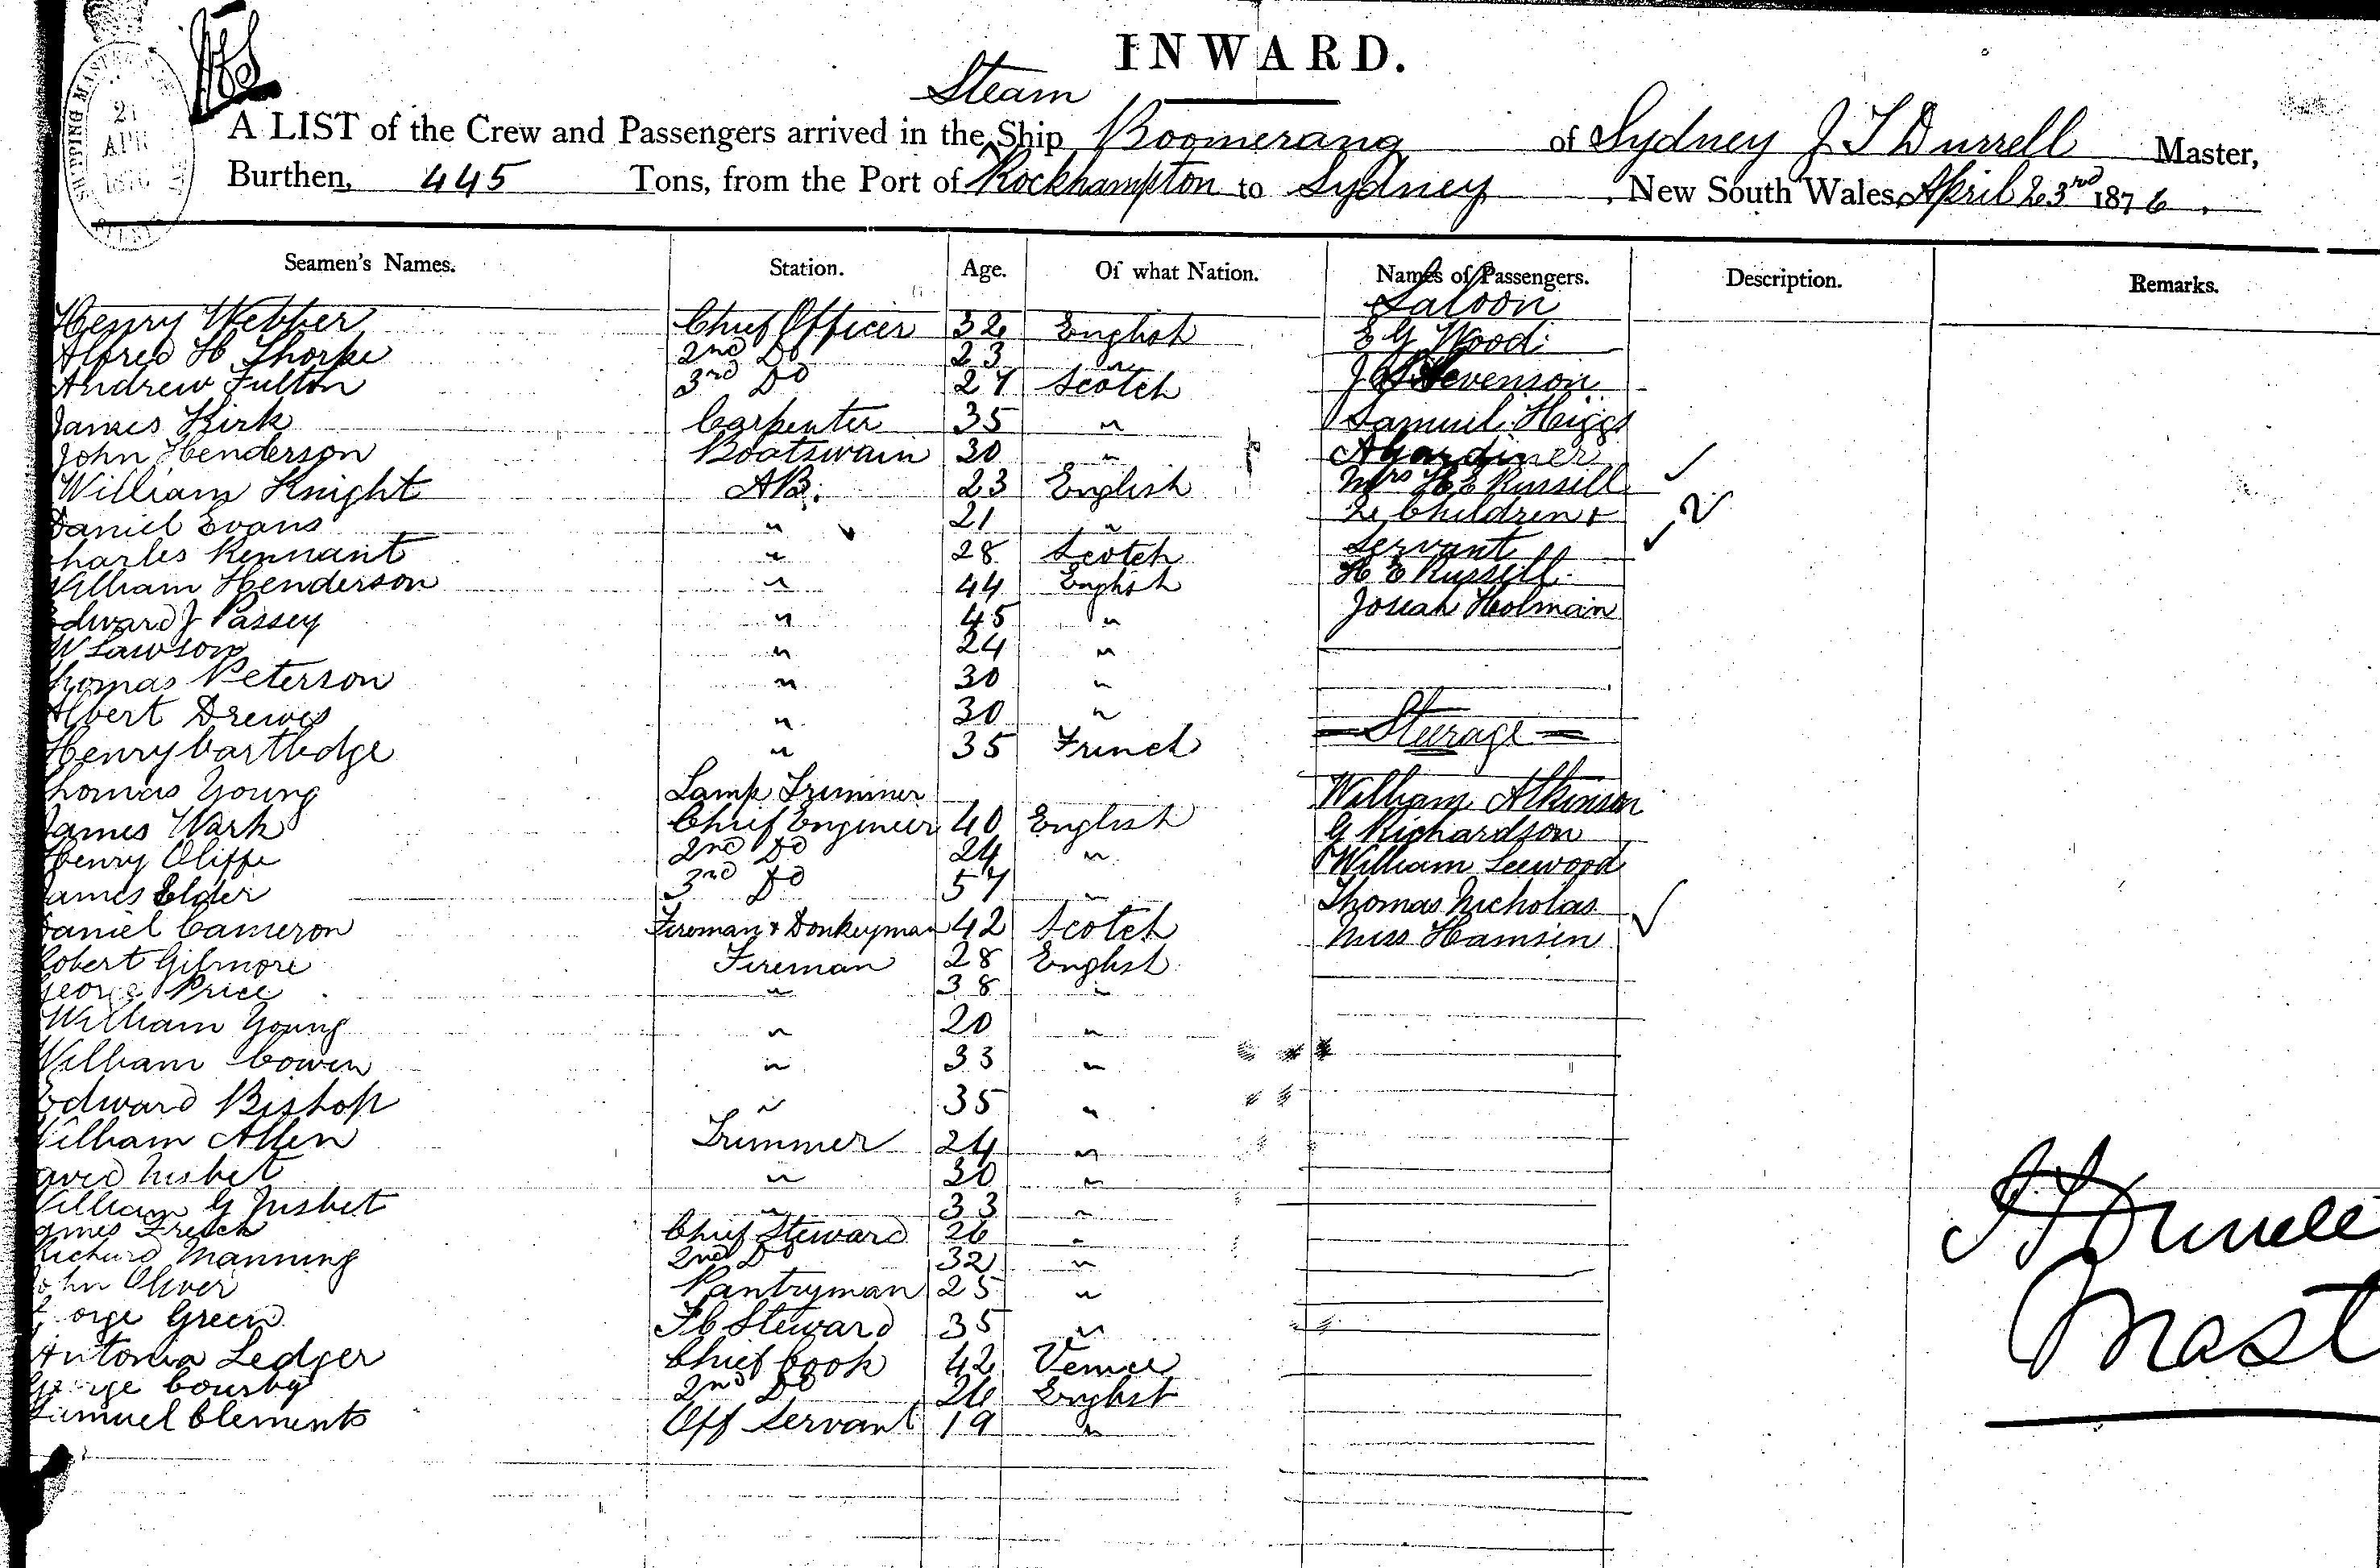 INWARD.
Steam
A LIST of the Crew and Passengers arrived in the Ship Boomerang of Sydney J T Durrell Master,
Burthen, 445 Tons, from the Port of Rockhampton to Sydney, New South Wales, April 23rd 1876.
Seamen's Names. Station. Age. Of what Nation. Names of Passengers. Description. Remarks.
Saloon
Henry Webber Chief Officer 32 English E G Wood
Alfred H Thorpe 2nd Do 23 "
Andrew Fulton 3rd Do 27 Scotch J Stevenson
James Kirk Carpenter 35 " Samuel Higgs
John Henderson Boatswain 30 " A Gardiner
William Knight AB. 23 English Mrs H E Russell
Daniel Evans " 21 " 2 Children +
Charles Rennant " 28 Scotch Servant
William Henderson " 44 English H E Russell
Edward J Passey " 45 " Josiah Holman
W Lawson " 24 "
Thomas Peterson " 30 "
Albert Drewes " 30 " Steerage
Henry Cartledge " 35 French
Thomas Young Lamp Trimmer William Atkinson
James Wark Chief Engineer 40 English G Richardson
Henry Oliffe 2nd Do 24 " William Leewood
James Elder 3rd Do 57 " Thomas Nicholas
Daniel Cameron Fireman & Donkeyman 42 Scotch Miss Hamsen
Robert Gilmore Fireman 28 English
George Price " 38 "
William Young " 20 "
William Cowen " 33 "
Edward Bishop " 35 "
William Allen Trimmer 24 "
David Nisbet " 30 "
William G Nisbet " 33 "
James French Chief Steward 26 "
Richard Manning 2nd Do 32 "
John Oliver Pantryman 25 "
George Green F C Steward 35 "
Antonia Ledger Chief Cook 42 Venice
George 2nd Do 26 English
Samuel Clements Off Servant 19 "
J T Durrell
Mast